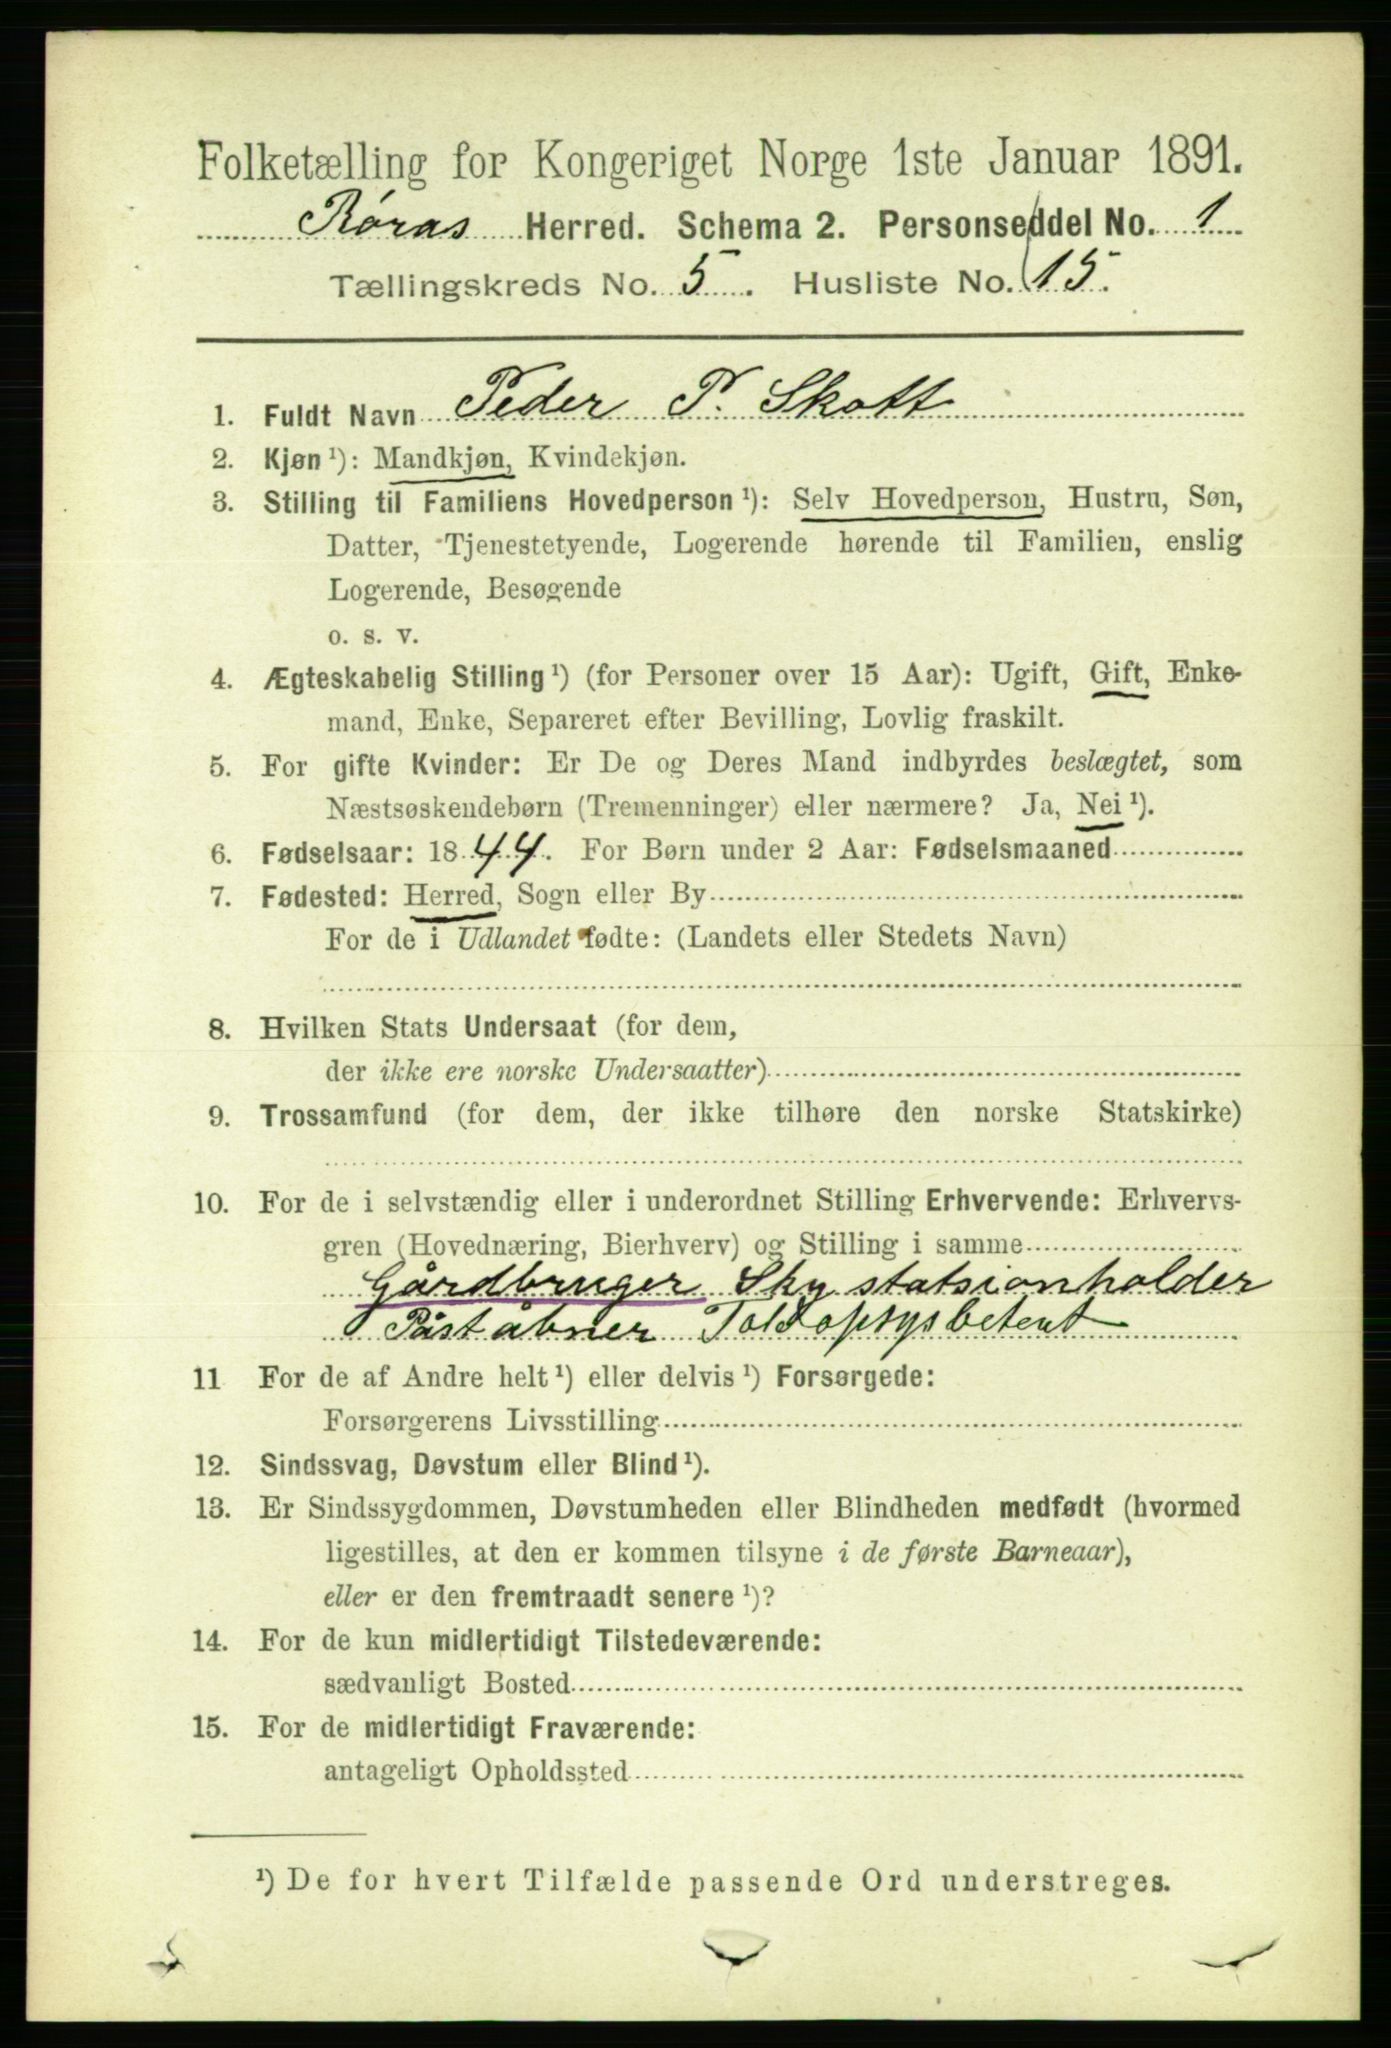 Folketælling for Kongeriget Norge 1ste Januar 1891.
Røras Herred. Schema 2. Personseddel No. 1
Tællingskreds No. 5. Husliste No. 15.
1. Fuldt Navn Peder P. Skott
2. Kjøn ¹): Mandkjøn, Kvindekjøn.
3. Stilling til Familiens Hovedperson ¹): Selv Hovedperson, Hustru, Søn,
Datter, Tjenestetyende, Logerende hørende til Familien, enslig
Logerende, Besøgende
o. s. v.
4. Ægteskabelig Stilling ¹) (for Personer over 15 Aar): Ugift, Gift, Enke-
mand, Enke, Separeret efter Bevilling, Lovlig fraskilt.
5. For gifte Kvinder: Er De og Deres Mand indbyrdes beslægtet, som
Næstsøskendebørn (Tremenninger) eller nærmere? Ja, Nei ¹).
6. Fødselsaar: 1844. For Børn under 2 Aar: Fødselsmaaned
7. Fødested: Herred, Sogn eller By
For de i Udlandet fødte: (Landets eller Stedets Navn)
8. Hvilken Stats Undersaat (for dem,
der ikke ere norske Undersaatter)
9. Trossamfund (for dem, der ikke tilhøre den norske Statskirke)
10. For de i selvstændig eller i underordnet Stilling Erhvervende: Erhvervs-
gren (Hovednæring, Bierhverv) og Stilling i samme
Gårdbruger Sky statsionholder
Påståbner Toldopsysbetent
11 For de af Andre helt ¹) eller delvis ¹) Forsørgede:
Forsørgerens Livsstilling
12. Sindssvag, Døvstum eller Blind ¹).
13. Er Sindssygdommen, Døvstumheden eller Blindheden medfødt (hvormed
ligestilles, at den er kommen tilsyne i de første Barneaar),
eller er den fremtraadt senere ¹)?
14. For de kun midlertidigt Tilstedeværende:
sædvanligt Bosted
15. For de midlertidigt Fraværende:
antageligt Opholdssted
¹) De for hvert Tilfælde passende Ord understreges.